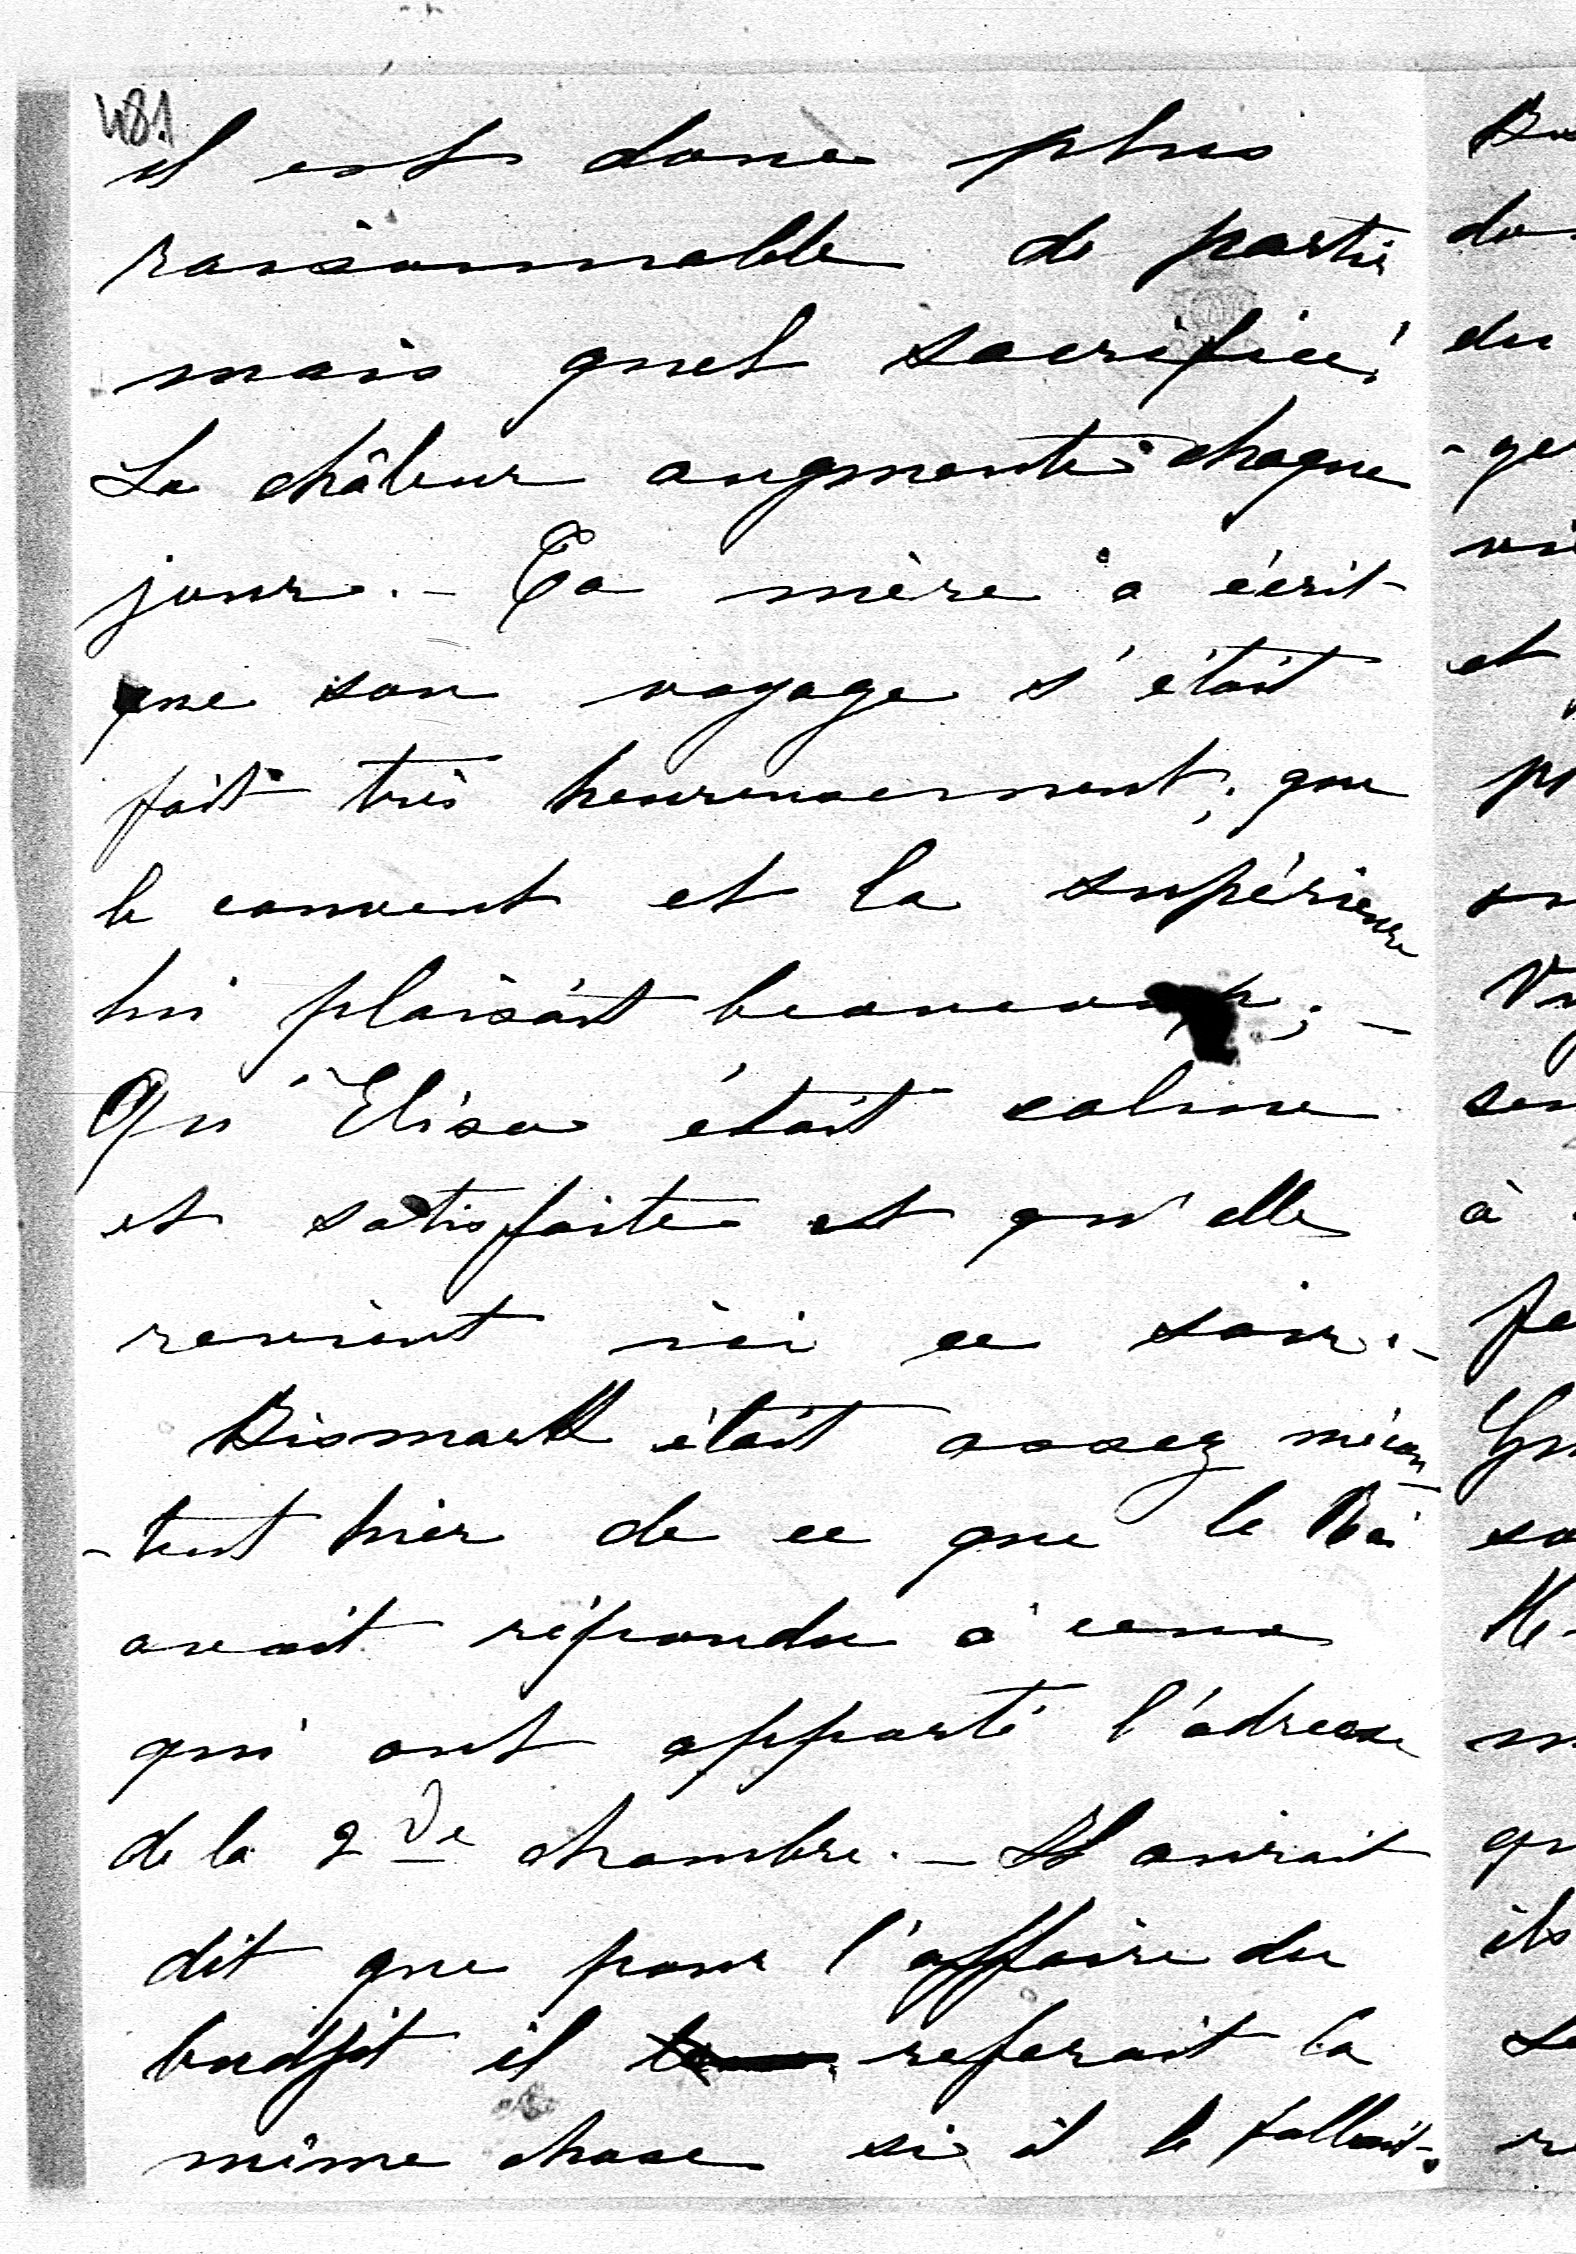 481
il est donc plus
raisonnable de partir
mais quel sacrifice!
La châleur augmente chaque
jour. – Ta mère a écrit
que son voyage s'était
fait très heureusement; que
le couvent et la supérieure
lui plaisait beaucoup; –
Qu'Elisa était calme
et satisfaite et qu'elle
revient ici ce soir. –
Bismark était assez mécon-
-tent hier de ce que le Roi
avait répondu à ceux
qui ont apporté l'adresse
de la 2de chambre. – Il aurait
dit que pour l'affaire du
budjet il referait la
même chose si il le fallait.